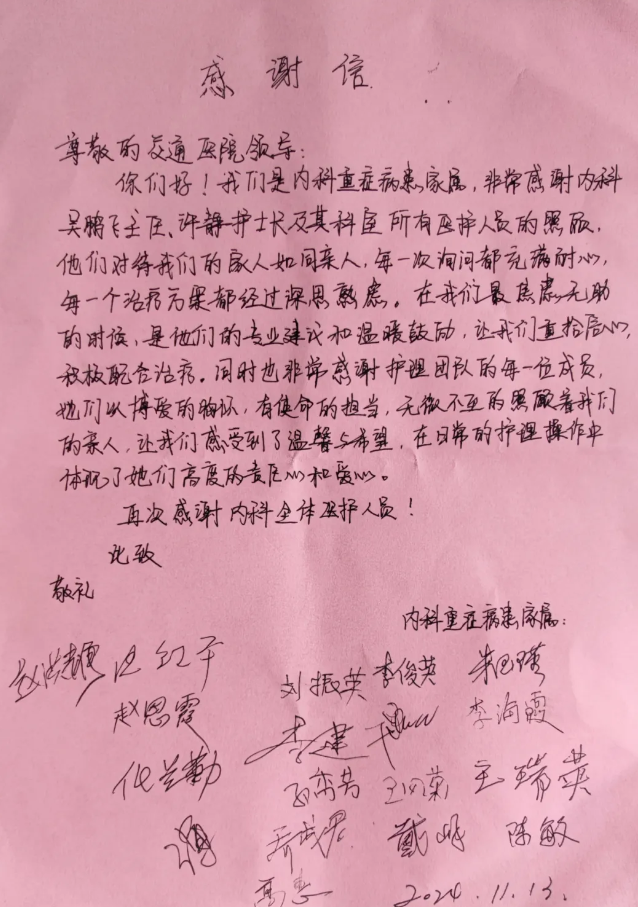 感谢信
尊敬的交通医院领导:
你们好!我们是内科重症病患家属,非常感谢内科
吴鹏飞主任、许静护士长及其科室所有医护人员的照顾,
他们对待我们的家人如同亲人,每一次询问都充满耐心,
每一个治疗方案都经过深思熟虑。在我们最焦虑无助
的时候,是他们的专业建议和温暖鼓励,让我们重拾信心,
积极配合治疗。同时也非常感谢护理团队的每一位成员,
她们以博爱的胸怀,有使命的担当,无微不至的照顾着我们
的亲人,让我们感受到了温馨与希望,在日常的护理操作中
体现了她们高度的责任心和爱心。
再次感谢内科全体医护人员!
此致
敬礼
内科重症病患家属:
刘振英 李俊英
赵思霞 李海霞
李建
王瑞英
戴明 陈敏
高惠 2024.11.13.